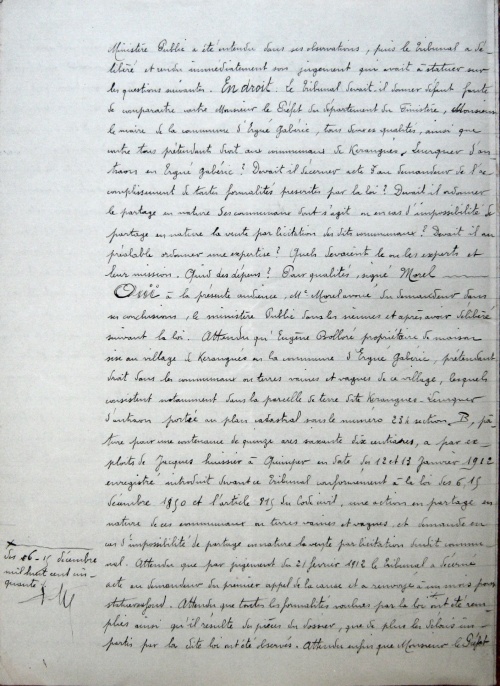 Ministère Public a été entendu dans ses observations, puis le Tribunal a dé-
libéré et rendu immédiatement son jugement qui avait à statuer sur
les questions suivantes. En droit. Le Tribunal devait-il donner défaut faute
de comparaître contre Monsieur le Préfet du département du Finistère, Monsieur
le maire de la commune d'Ergué Gabéric, tous deux ès qualités, ainsi que
contre tous prétendant droit aux communaux de Keranguéo-Leurguer d'an
traon en Ergué Gabéric? Devait-il décerner acte d'au demandeur de l'ac-
complissement de toutes formalités prescrites par la loi? Devait-il ordonner
le partage en nature des communaux dont s'agit ou en cas d'impossibilité de
partage en nature la vente par licitation des dits communaux? Devait-il au
préalable ordonner une expertise? Quels devaient le ou les experts et
leur mission. Quid des dépens? Pour qualités, signé Morel
Ouï à la présente audience, Me Morel avoué du demandeur dans
ses conclusions, le ministère Public dans les siennes et après avoir délibéré
suivant la loi. Attendu qu'Eugène Bolloré propriétaire de maison
sise au village de Keranguéo en la commune d'Ergué Gabéric, prétendant
droit dans les communaux ou terres vaines et vagues de ce village, lesquels
consistent notamment dans la parcelle de terre dite Keranguéo-Leurguer
d'antraon portée au plan cadastral sous le numéro 254 section B, pâ-
ture pour une contenance de quinze ares soixante dix centiares, a par ex-
ploits de Jacques huissier à Quimper en date des 12 et 13 Janvier 1912
enregistré introduit devant ce Tribunal conformément à la loi des 6, 15
décembre 1850 et l'article 815 du Code civil, une action en partage en
nature de ces communaux ou terres vaines et vagues, et demandé en
cas d'impossibilité de partage en nature la vente par licitation dudit commu-
nal. Attendu que par jugement du 21 février 1912 le tribunal a décerné
acte au demandeur du premier appel de la cause et a renvoyé à un mois pour
statuer au fond. Attendu que toutes les formalités voulues par la loi ont été rem-
plies ainsi qu'il résulte des pièces du dossier, que de plus les délais im-
partis par la dite loi ont été observés. Attendu enfin que Monsieur le Préfet
des 06-15 décembre
mil huit cent cin-
quante